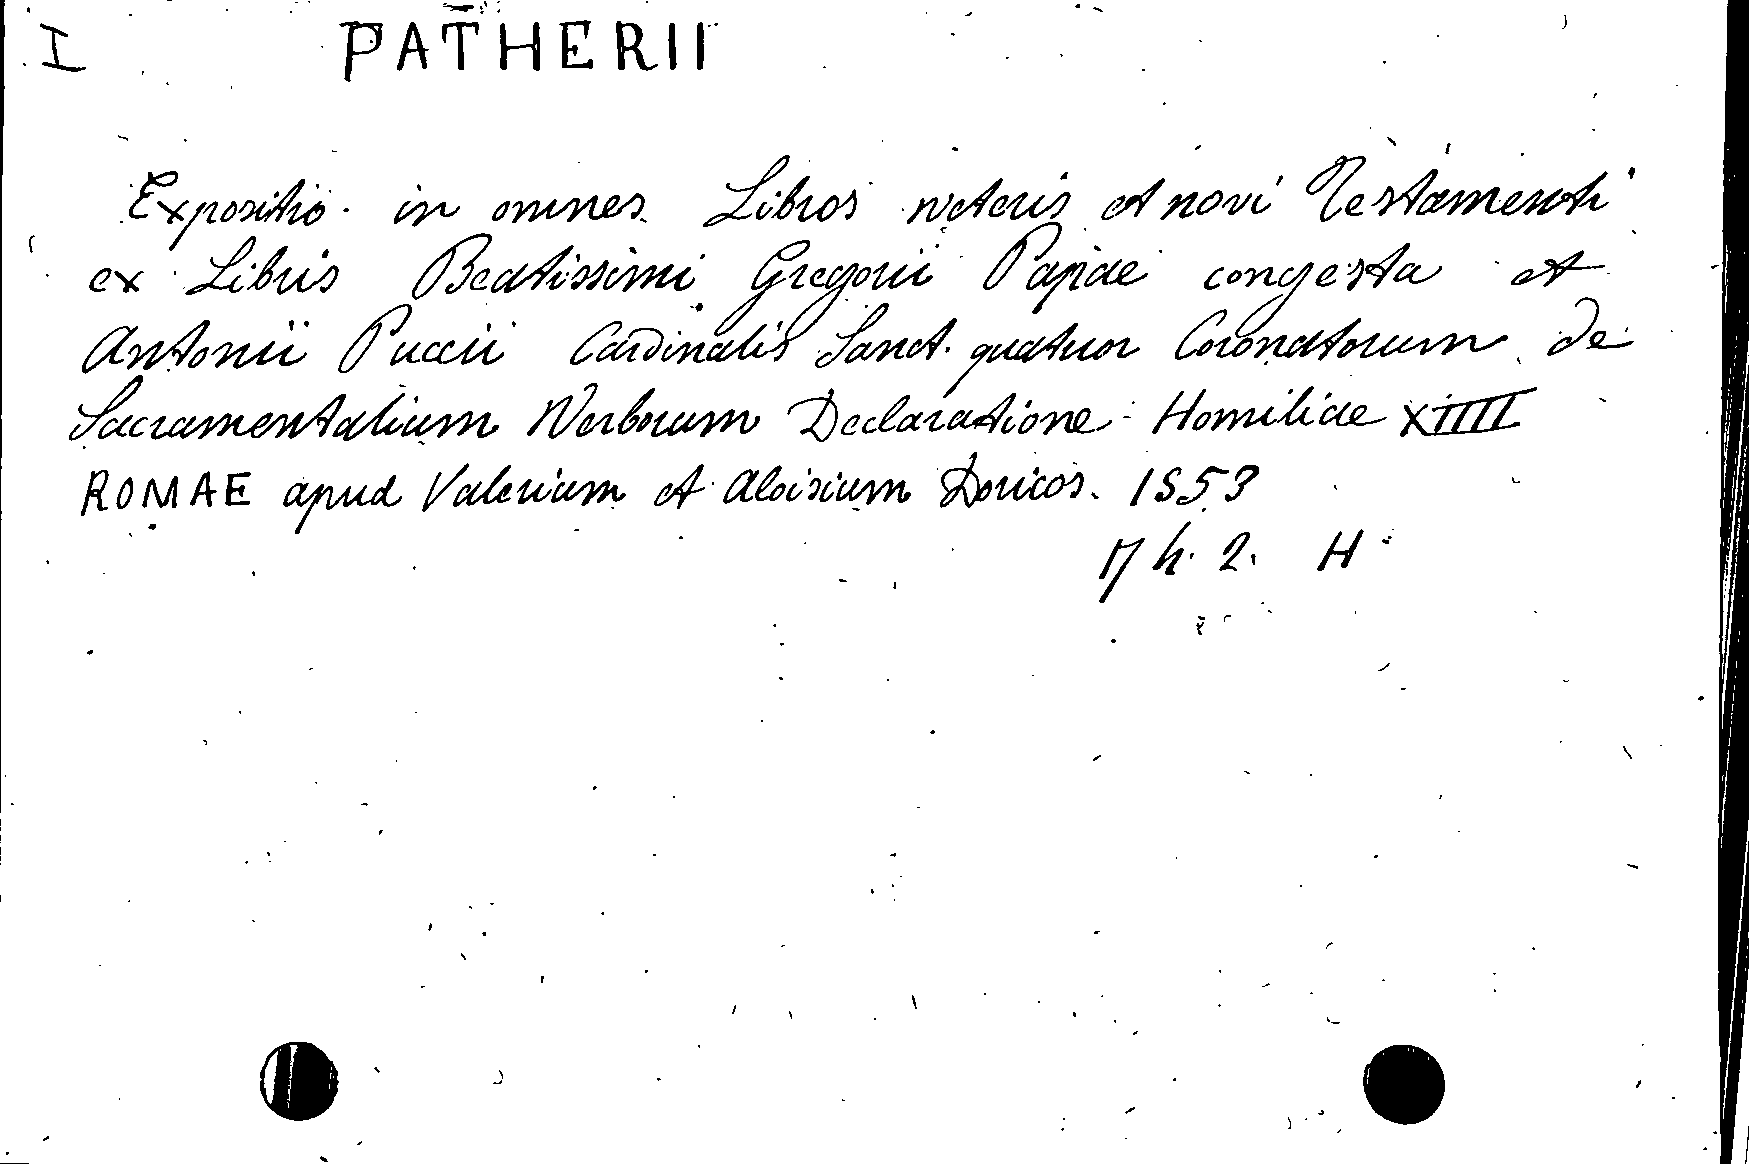 I PATHERII
Expositio in omnes Libros veteris et novi Testamenti
ex Libris Beatissimi Gregorii Papae congesta et
Antonii Puccii Cardinalis Sanct. quatuor Coronatorum de
Sacramentalium Verborum Declaratione Homiliae XIIII
ROMAE apud Valerium et Aloisium Doricos. 1553
17 h. 2. H